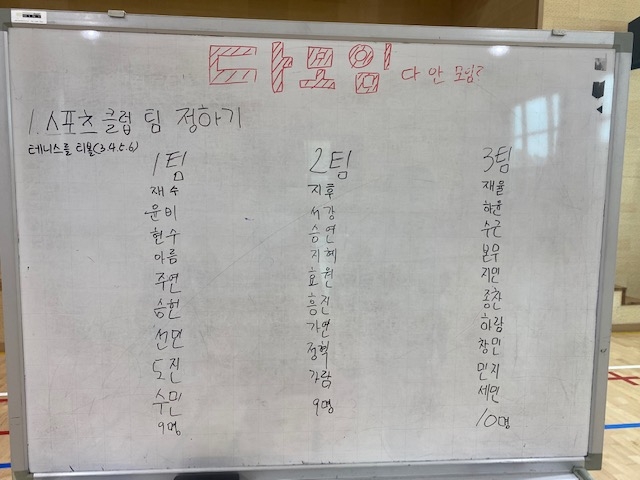 다모임 다 안 모임?
1. 스포츠 클럽 팀 정하기
테니스를 티볼(3.4.5.6)
1팀
재수
윤비
현수
아름
주연
승헌
선민
도진
수민
9명
2팀
지후
서강
승연
지혜
효원
흥진
가연
정혁
가람
9명
3팀
재율
하윤
수근
본우
지민
종찬
하람
창민
민지
세민
10명